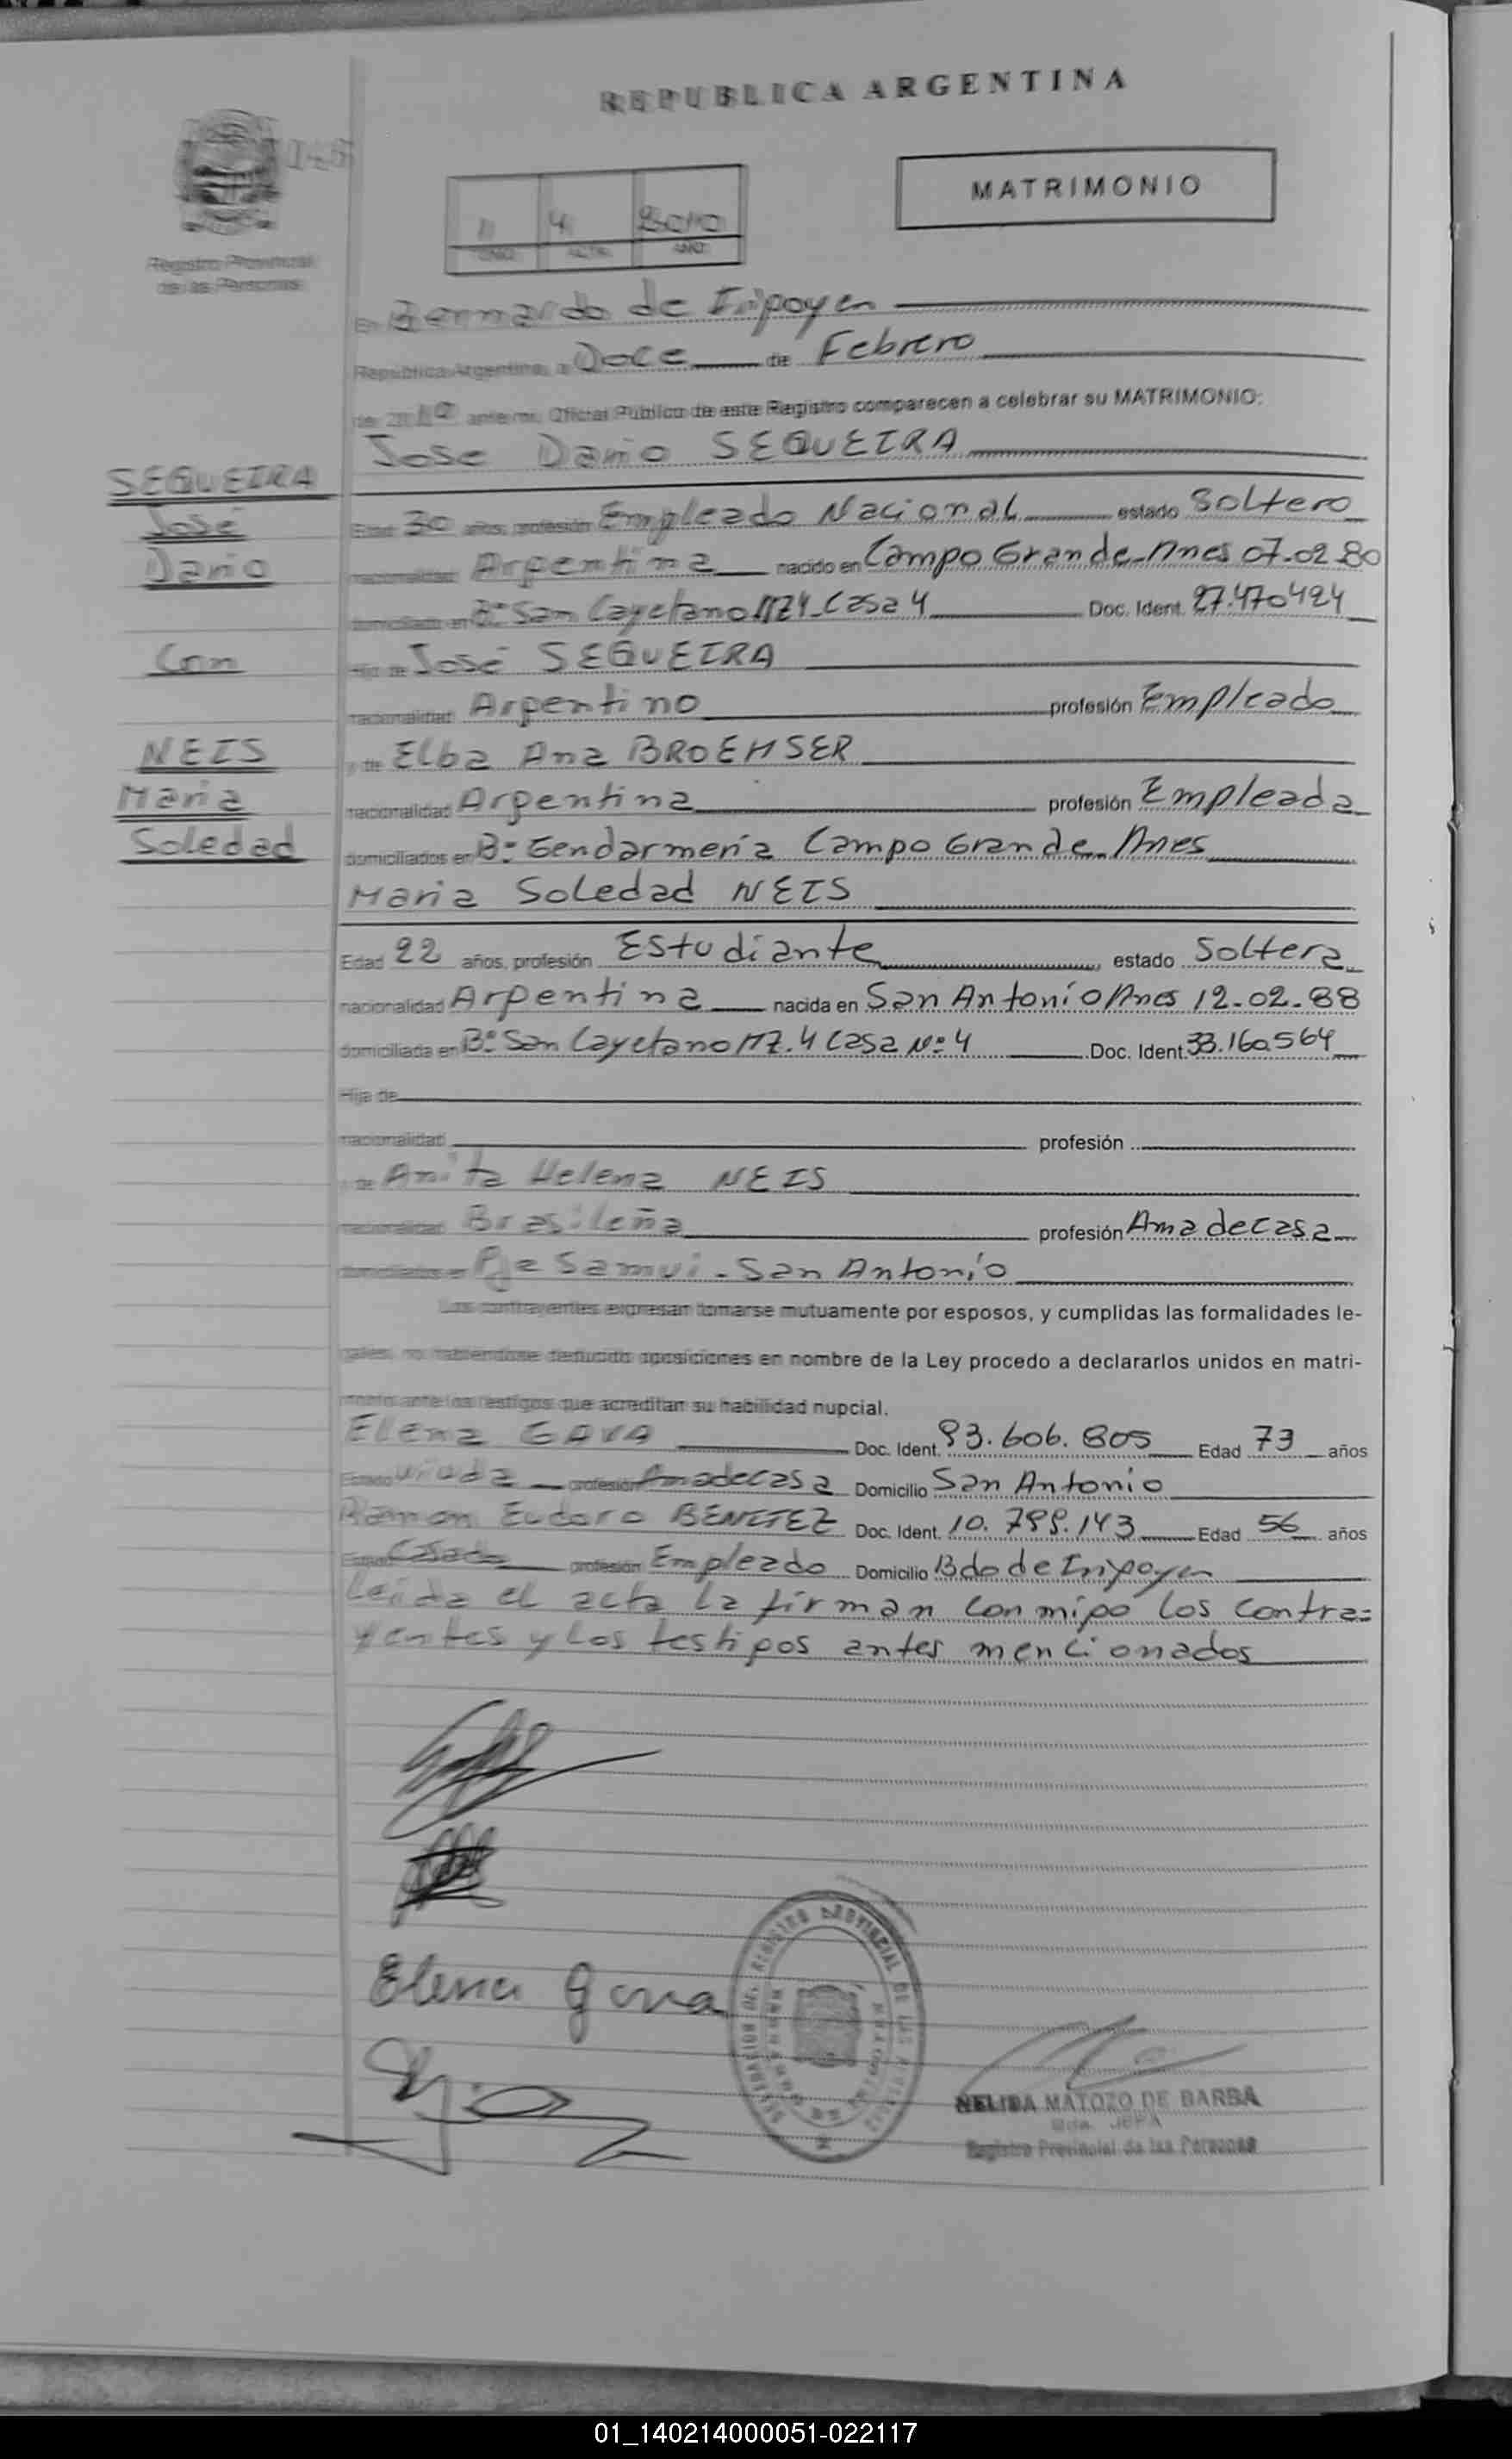 REPUBLICA ARGENTINA
MATRIMONIO
4 2010
TOMO ACTA AÑO
Registro Provincial
de las Personas
En Bernardo de Irigoyen
República Argentina, a Doce de Febrero
de 2010 ante mi, Oficial Público de este Registro comparecen a celebrar su MATRIMONIO:
Jose Dario SEQUEIRA
SEQUEIRA
José
Dario
Con
NEIS
Maria
Soledad
Edad 30 años, profesión Empleado Nacional estado Soltero
nacionalidad Argentina nacido en Campo Grande-Mnes 07.02.80
domiciliado en Bº San Cayetano MZ4-Casa 4 Doc. Ident. 27.470424
Hijo de José SEQUEIRA
nacionalidad Argentino profesión Empleado
y de Elba Ana BROEMSER
nacionalidad Argentina profesión Empleada
domiciliados en Bº Gendarmería Campo Grande-Mnes
Maria Soledad NEIS
Edad 22 años, profesión Estudiante estado Soltera
nacionalidad Argentina nacida en San Antonio Mnes 12-02-88
domiciliada en Bº San Cayetano MZ.4 Casa Nº 4 Doc. Ident. 33.160.564
Hija de
nacionalidad profesión
y de Anita Helena NEIS
nacionalidad Brasileña profesión Ama de casa
domiciliados en Pje Samui - San Antonio
Los contrayentes expresan tomarse mutuamente por esposos, y cumplidas las formalidades le-
gales, no habiéndose deducido oposiciones en nombre de la Ley procedo a declararlos unidos en matri-
monio ante los testigos que acreditan su habilidad nupcial.
Elena GAVA Doc. Ident. 93.606.805 Edad 73 años
Estado viuda profesión Ama de casa Domicilio San Antonio
Ramon Eudoro BENITEZ Doc. Ident. 10.799.143 Edad 56 años
Estado Casado profesión Empleado Domicilio Bdo de Irigoyen
Leída el acta la firman conmigo los contra=
yentes y los testigos antes mencionados
Elena Gava
NELIDA MATOZO DE BARBA
JEFA
Registro Provincial de las Personas
01_140214000051-022117